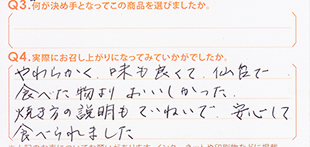 Q3.何が決め手となってこの商品を選びましたか。
Q4.実際にお召し上がりになってみていかがでしたか。
やわらかく、味も良くて、仙台で
食べた物より おいしかった。
焼き方の説明もていねいで、安心して
食べられました